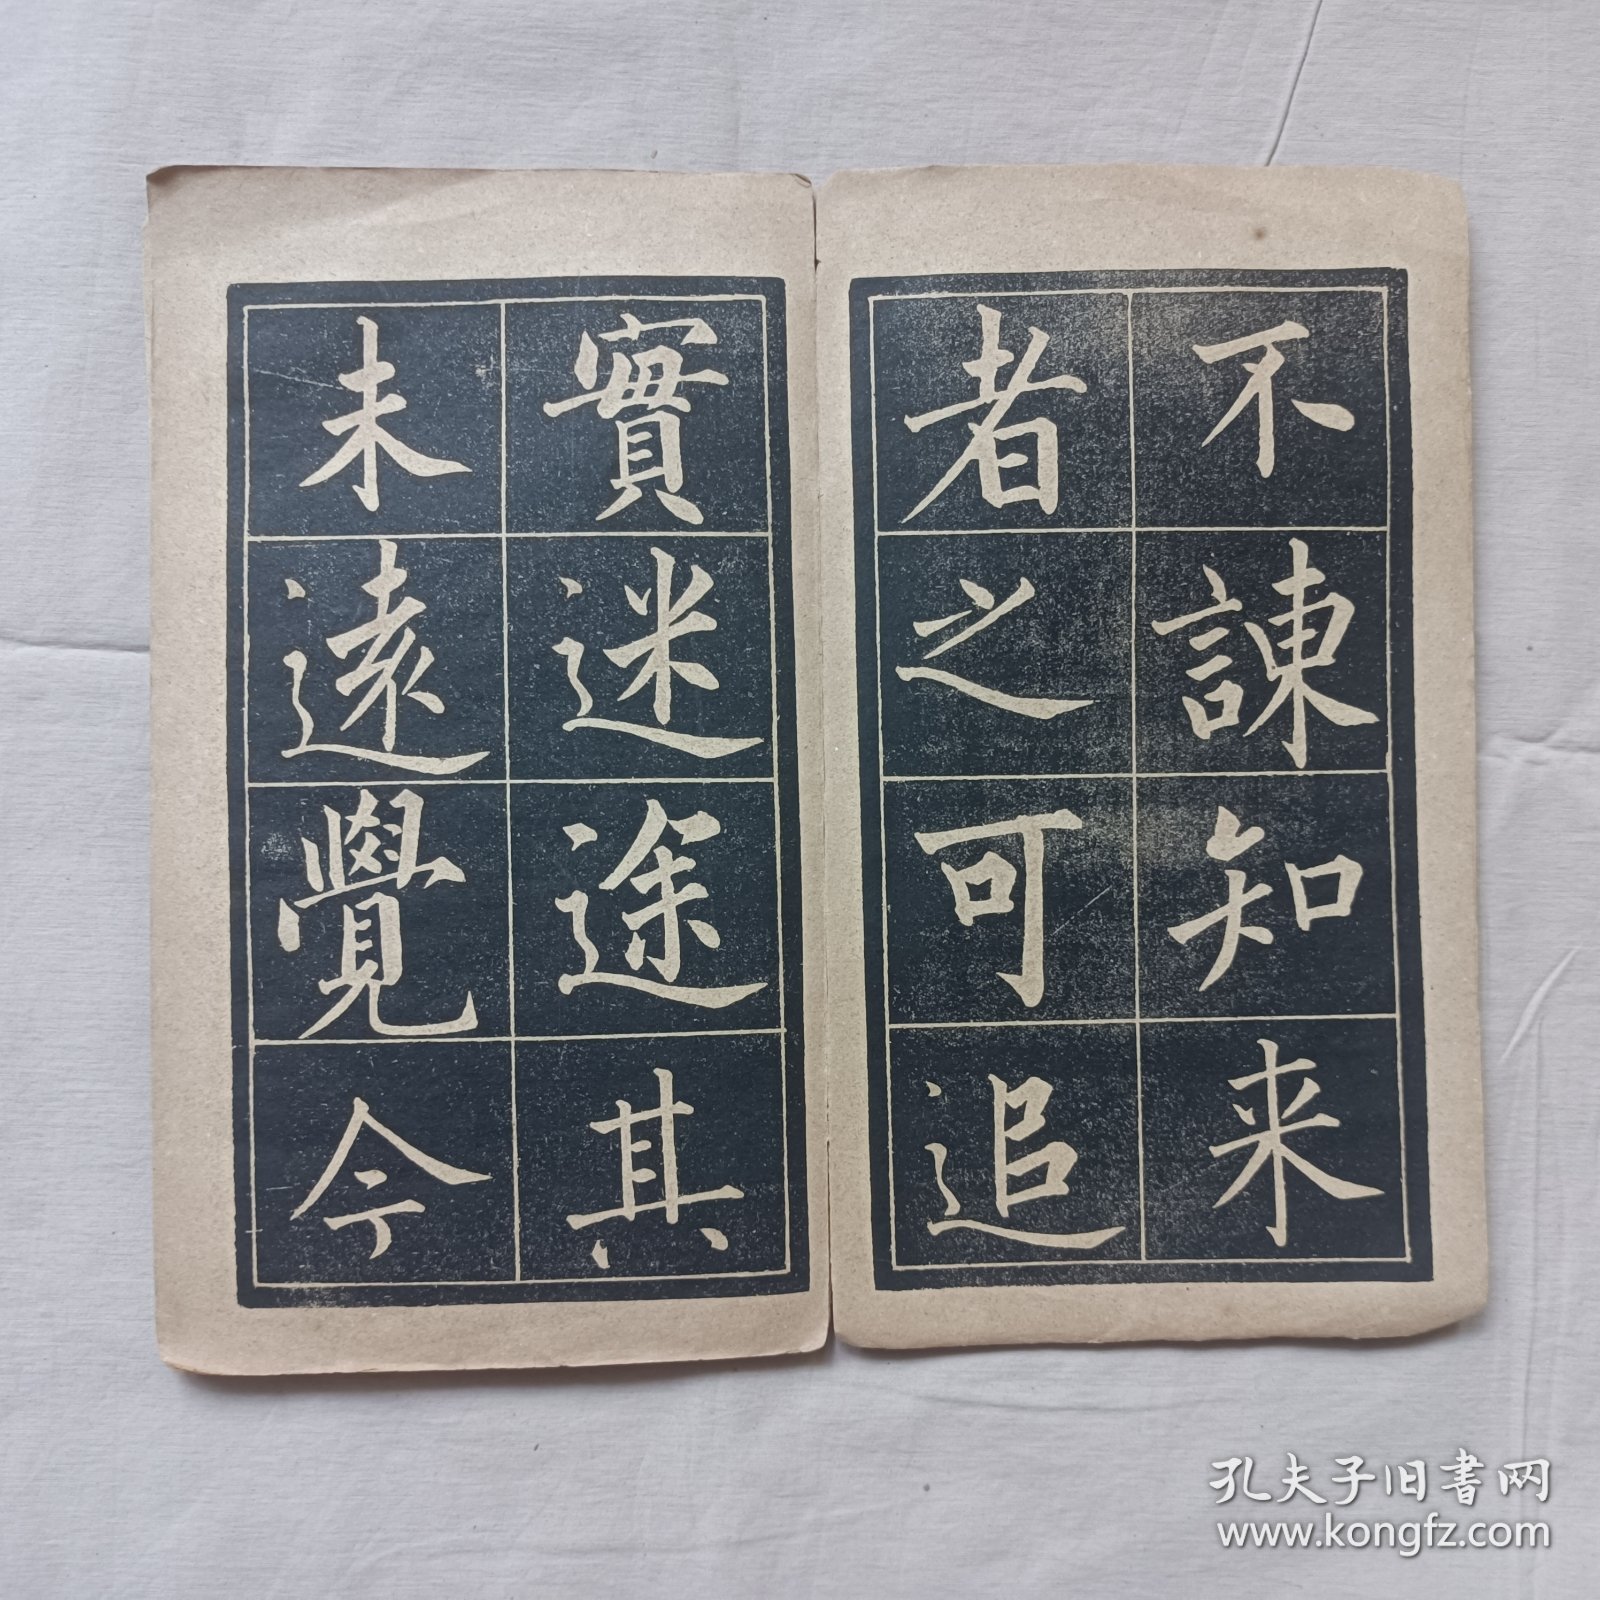 不諫知来
者之可追
實迷途其
未遠覺今
孔夫子旧书网
www.kongfz.com